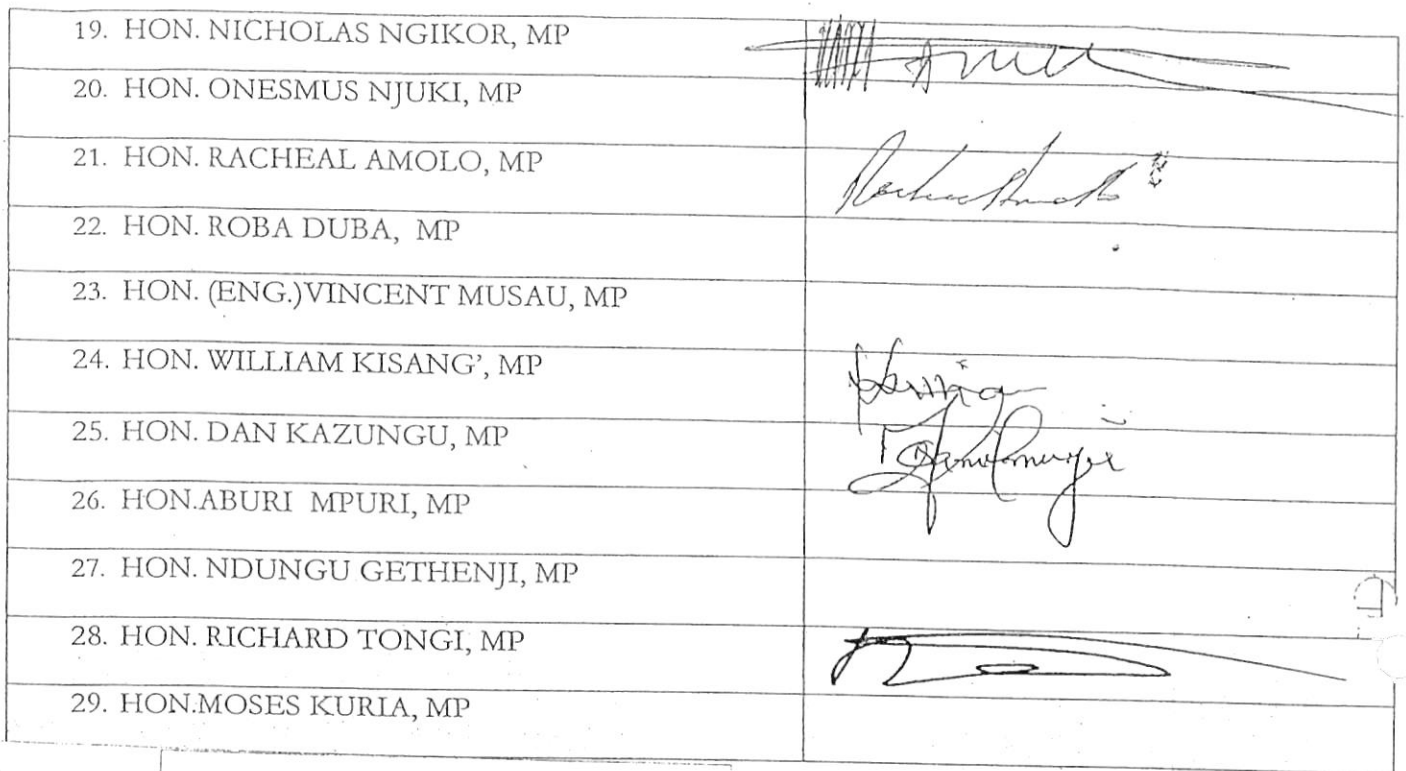 19. HON. NICHOLAS NGIKOR, MP
20. HON. ONESMUS NJUKI, MP
21. HON. RACHEAL AMOLO, MP
22. HON. ROBA DUBA, MP
23. HON. (ENG.)VINCENT MUSAU, MP
24. HON. WILLIAM KISANG', MP
25. HON. DAN KAZUNGU, MP
26. HON.ABURI MPURI, MP
27. HON. NDUNGU GETHENJI, MP
28. HON. RICHARD TONGI, MP
29. HON.MOSES KURIA, MP